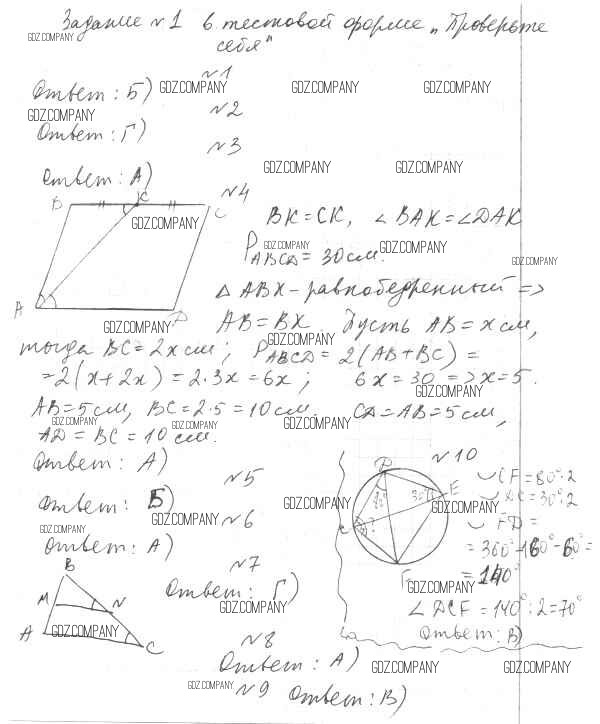 Задание №1 в тестовой форме „Проверьте
себя"
GDZ.COMPANY
№1
Ответ: Б)
GDZ.COMPANY GDZ.COMPANY GDZ.COMPANY
№2
GDZ.COMPANY
Ответ: Г)
№3
GDZ.COMPANY GDZ.COMPANY
Ответ: А)
№4
B K C
GDZ.COMPANY
A D
BK=CK, ∠BAK=∠DAK
GDZ.COMPANY GDZ.COMPANY GDZ.COMPANY
P ABCD = 30 см.
△ABK - равнобедренный =>
GDZ.COMPANY
AB=BK Пусть AB=x см,
GDZ.COMPANY
тогда BC=2x см; P ABCD = 2(AB+BC) =
=2(x+2x)=2·3x=6x; 6x=30 =>x=5.
GDZ.COMPANY
AB=5 см, BC=2·5=10 см. CD=AB=5 см,
GDZ.COMPANY GDZ.COMPANY GDZ.COMPANY
AD=BC=10 см.
Ответ: А)
№5
Ответ: Б)
GDZ.COMPANY
№6
GDZ.COMPANY
Ответ: А)
№7
Ответ: Г)
GDZ.COMPANY
B
M N
A C
GDZ.COMPANY
№8
Ответ: А)
GDZ.COMPANY
№9
Ответ: В)
№10
E
30°
?
GDZ.COMPANY GDZ.COMPANY
◡CF=80°·2
=30°·2
◡FD=
=360°-160°-60°=
=140°
GDZ.COMPANY
∠DCF=140°:2=70°
Ответ: В)
GDZ.COMPANY GDZ.COMPANY